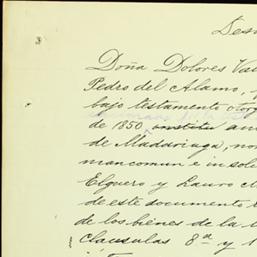 Doña Dolores
Pedro del Alamo,
bajo testamento otorg
de 1850
de Madariaga,
mancomun é in soli
Elguero y Lauro
de este documento
de los bienes de la
clausulas 8ª y 1